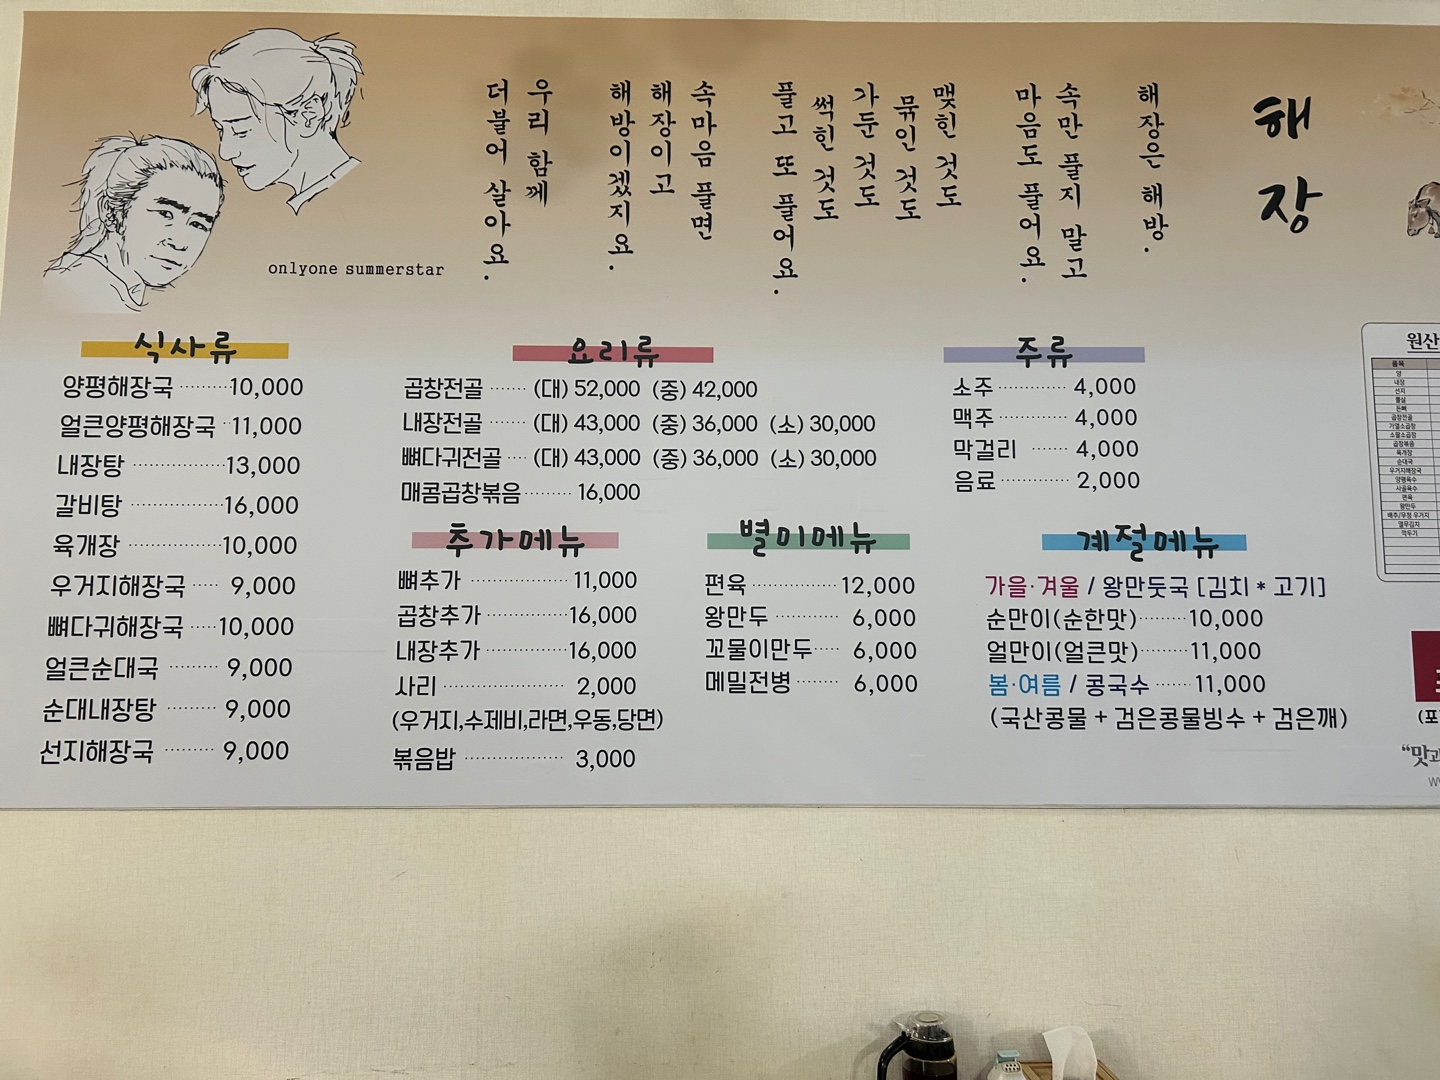 해장
해장은 해방.
속만 풀지 말고
마음도 풀어요.
맺힌 것도
묶인 것도
가둔 것도
썩힌 것도
풀고 또 풀어요.
속마음 풀면
해장이고
해방이겠지요.
우리 함께
더불어 살아요.
onlyone summerstar
식사류
양평해장국 10,000
얼큰양평해장국 11,000
내장탕 13,000
갈비탕 16,000
육개장 10,000
우거지해장국 9,000
뼈다귀해장국 10,000
얼큰순대국 9,000
순대내장탕 9,000
선지해장국 9,000
요리류
곱창전골 (대) 52,000 (중) 42,000
내장전골 (대) 43,000 (중) 36,000 (소) 30,000
뼈다귀전골 (대) 43,000 (중) 36,000 (소) 30,000
매콤곱창볶음 16,000
추가메뉴
뼈추가 11,000
곱창추가 16,000
내장추가 16,000
사리 2,000
(우거지,수제비,라면,우동,당면)
볶음밥 3,000
별미메뉴
편육 12,000
왕만두 6,000
꼬물이만두 6,000
메밀전병 6,000
주류
소주 4,000
맥주 4,000
막걸리 4,000
음료 2,000
계절메뉴
가을·겨울 / 왕만둣국 [김치 * 고기]
순만이(순한맛) 10,000
얼만이(얼큰맛) 11,000
봄·여름 / 콩국수 11,000
(국산콩물 + 검은콩물빙수 + 검은깨)
원산
품목
양
내장
선지
볼살
돈뼈
곱창전골
가열소곱창
소팔소곱창
곱창볶음
육개장
순대국
우거지해장국
양평육수
사골육수
편육
왕만두
배추/무청 우거지
열무김치
깍두기
(포
“맛과